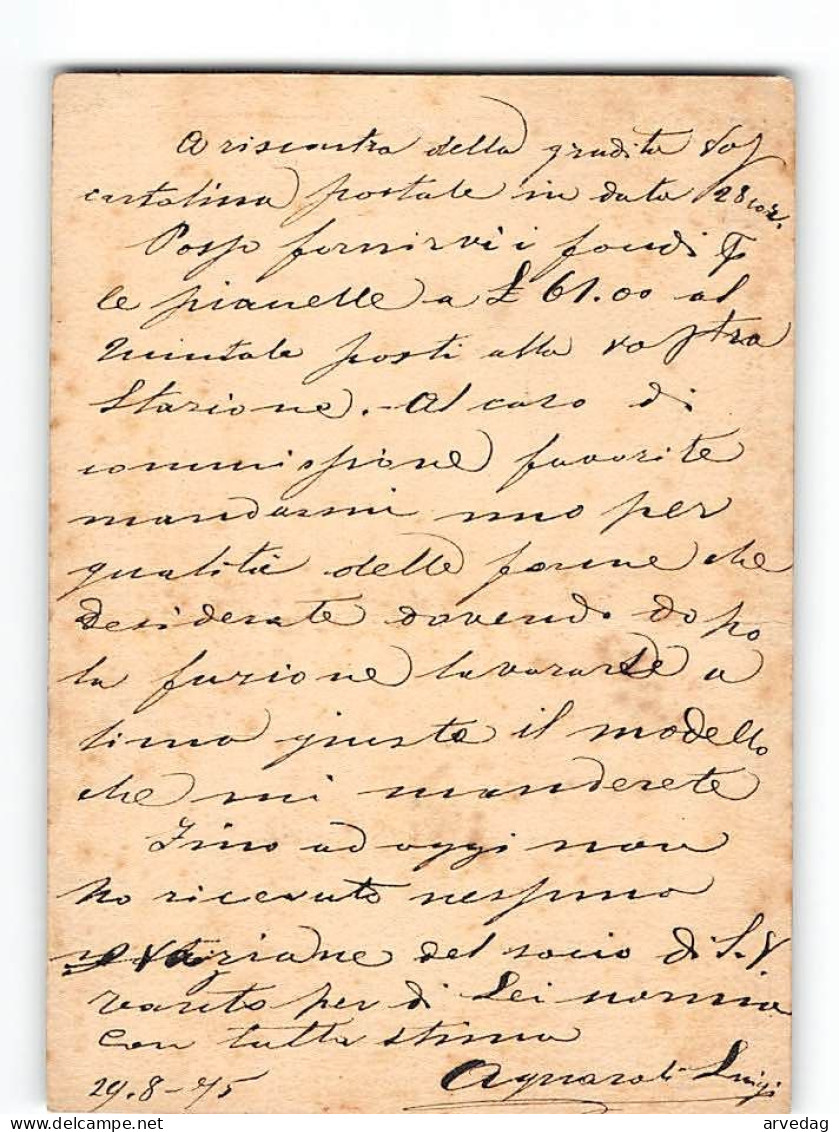 A riscontro della gradita Vos
cartolina postale in data 28 cor.
Posso fornirvi i fondi p
le pianelle a £ 61.00 al
Quintale posti alla vostra
Stazione. - Al caso di
commissione favorite
mandarmi uno per
qualità delle forme che
desiderate dovendo dopo
la fusione lavorarle a
lima giusta il modello
che mi manderete
Fino ad oggi non
ho ricevuto nessuna
del socio di S. V
per di Lei
con tutta stima
29.8-75 Luigi
delcampe.net
arvedag